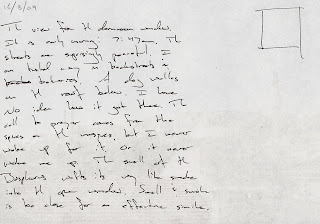 15/8/09
The view from the dormer window.
It is early morning 7:47am. The
streets are surprisingly peaceful. I
am tucked away in backstreets in
A dog walks
on the roof below. I have
no idea how it got there. The
call to prayer comes from the
spires on the mosques, but I never
wake up for it. Or it never
wakes me up. The smell of the
Bosphorus with its very like smoke
into the open window. Smell & smoke
is too close for an effective simile.